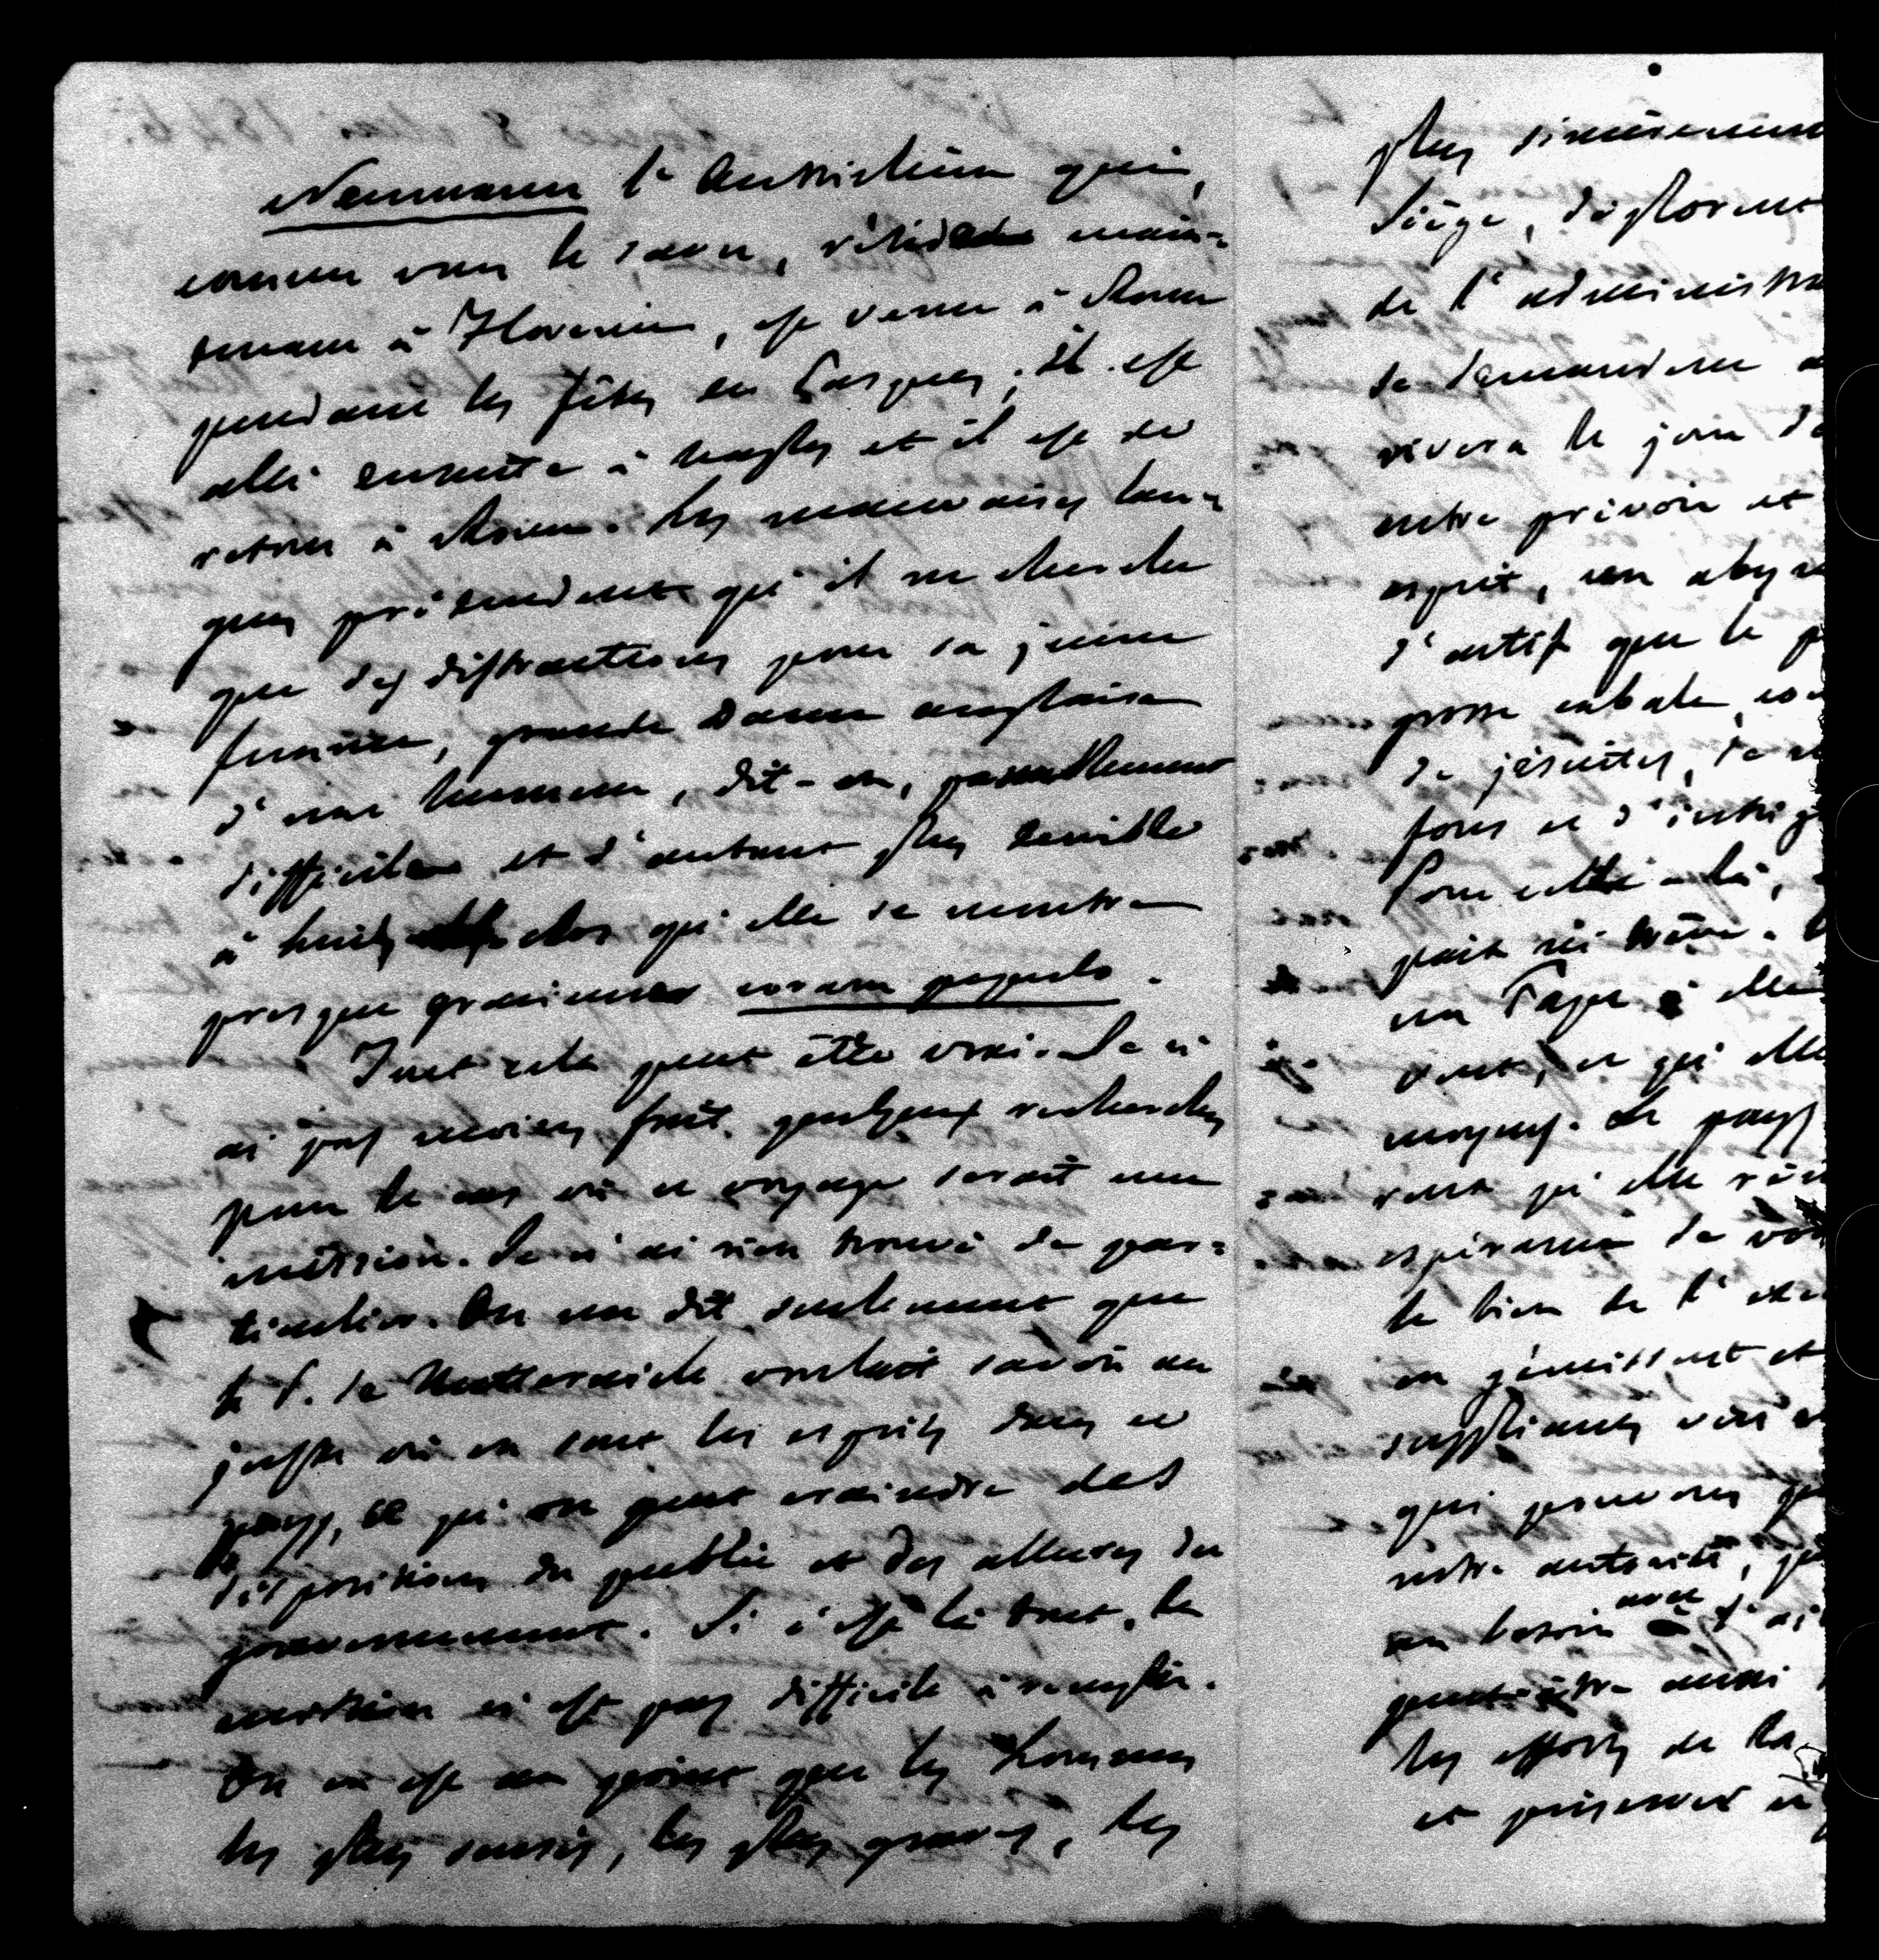 Neumann l'Autrichien qui,
comme vous le savez, réside main-
tenant à Florence, est venu à Rome
pendant les fêtes de Pasques; il est
allé ensuite à Naples et il est de
retour à Rome. Les mauvaises lan-
gues prétendent qu'il ne cherche
que des distractions pour sa jeune
femme, grande Dame anglaise
d'une humeur, dit-on, passablement
difficile et d'autant plus terrible
à huis clos qu'elle se montre
presque gracieuse coram populo.
Tout cela peut être vrai. Je n'
ai pas moins fait quelques recherches
pour le cas où ce voyage serait une
mission. Je n'ai rien trouvé de par-
ticulier. On me dit seulement que
le P. de Metternich voulait savoir au
juste où en sont les esprits dans ce
pays, ce qu'on peut craindre des
dispositions du public et des allures du
gouvernement. Si c'est là tout, la
mission n'est pas difficile à remplir.
On en est au point que les hommes
les plus sensés, les plus graves, les
plus sincèrement
Siège, déplorent
de l'administra
se demandent a
rivera le jour de
entre prévoir et
esprit, un
d'actif que le p
grosse cabale, co
de jésuites, de
d'intrig
Pour celle-là,
un Pape
veut, ce qu'elle
moyens. Le pays
veut qu'elle
espérance de
le bien de l'
en gémissent et
suppliants
qui peuvent
notre autorité,
un besoin avec d'ai
peut-être aussi
les efforts de la
et préserver